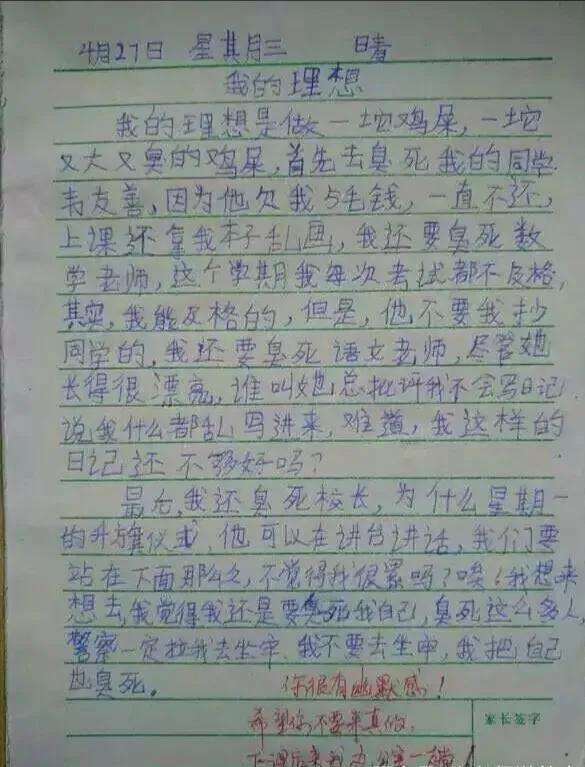 4月27日 星其月三 晴
我的理想
我的理想是做一坨鸡屎,一坨
又大又臭的鸡屎,首先去臭死我的同学
韦友善,因为他欠我5毛钱,一直不还,
上课还拿我本子乱画,我还要臭死数
学老师,这个学期我每次考试都不及格,
其实,我能及格的,但是,他不要我抄
同学的,我还要臭死语文老师,尽管她
长得很漂亮,谁叫她总批评我不会写日记,
说我什么都乱写进来,难道,我这样的
日记还不够好吗?
最后,我还臭死校长,为什么星期一
的升旗仪式,他可以在讲台讲话,我们要
站在下面那么久,不觉得我很累吗?唉!我想来
想去,我觉得我还是要臭死我自己,臭死这么多人,
警察一定拉我去坐牢,我不要去坐牢,我把自己
也臭死。
你很有幽默感!
希望你不要来真的,
家长签字
下课后来我办公室一趟!